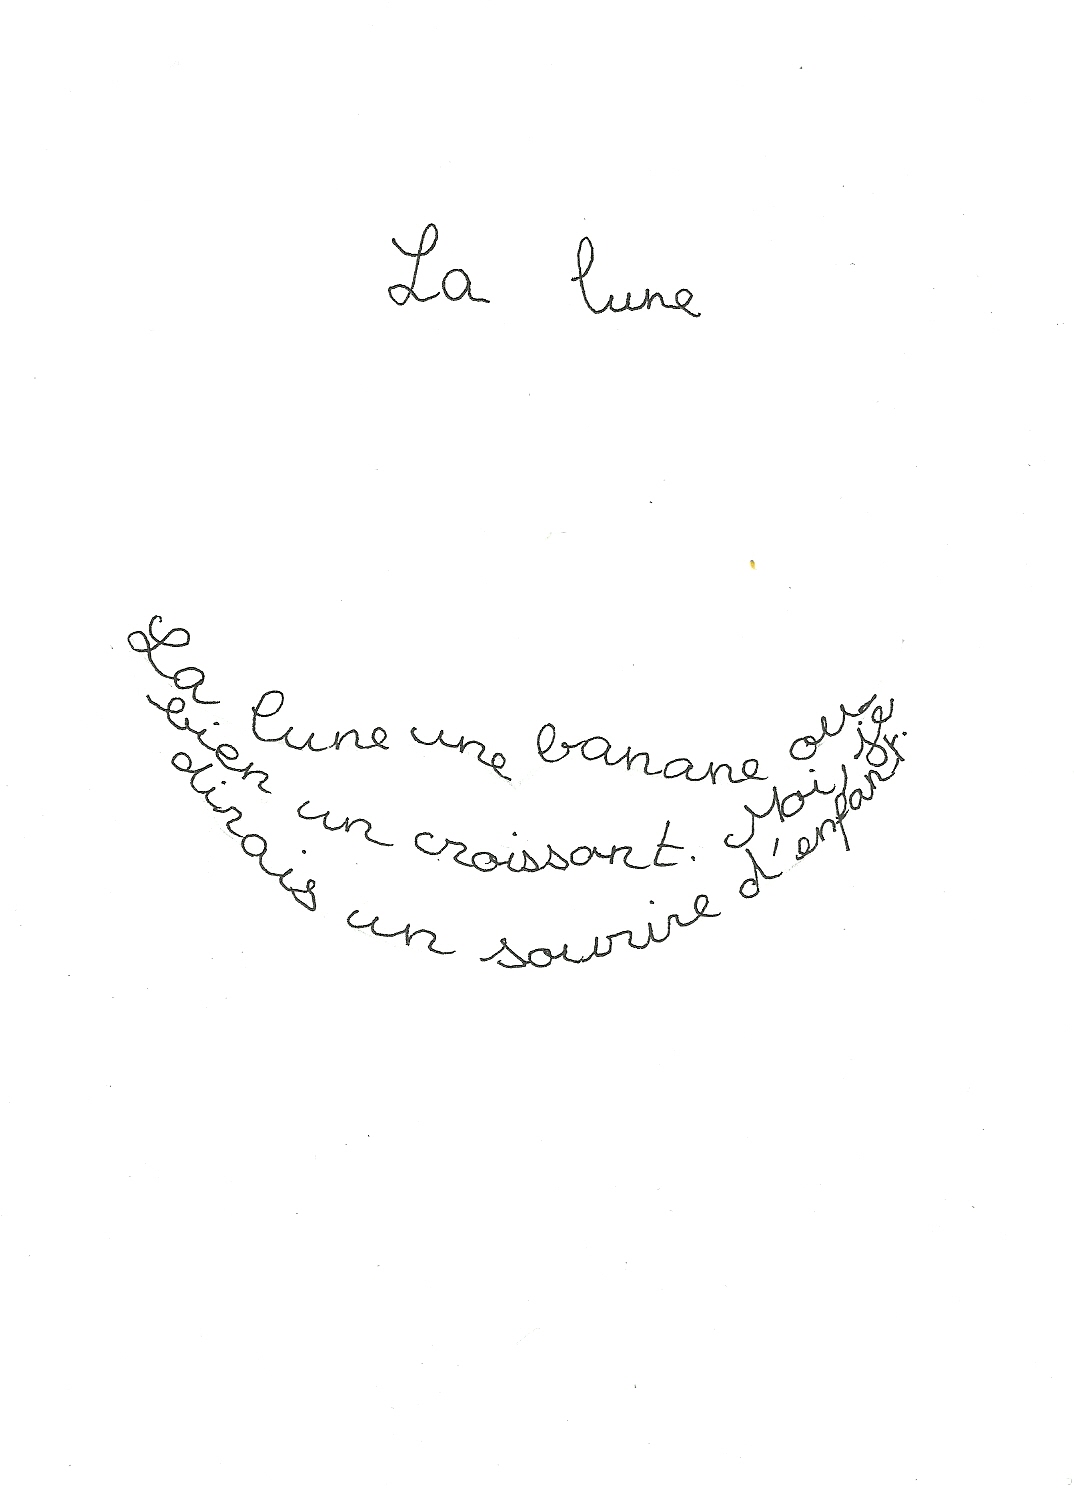 La lune
La lune une banane ou
bien un croissant. Moi, je
dirais un sourire d'enfant.